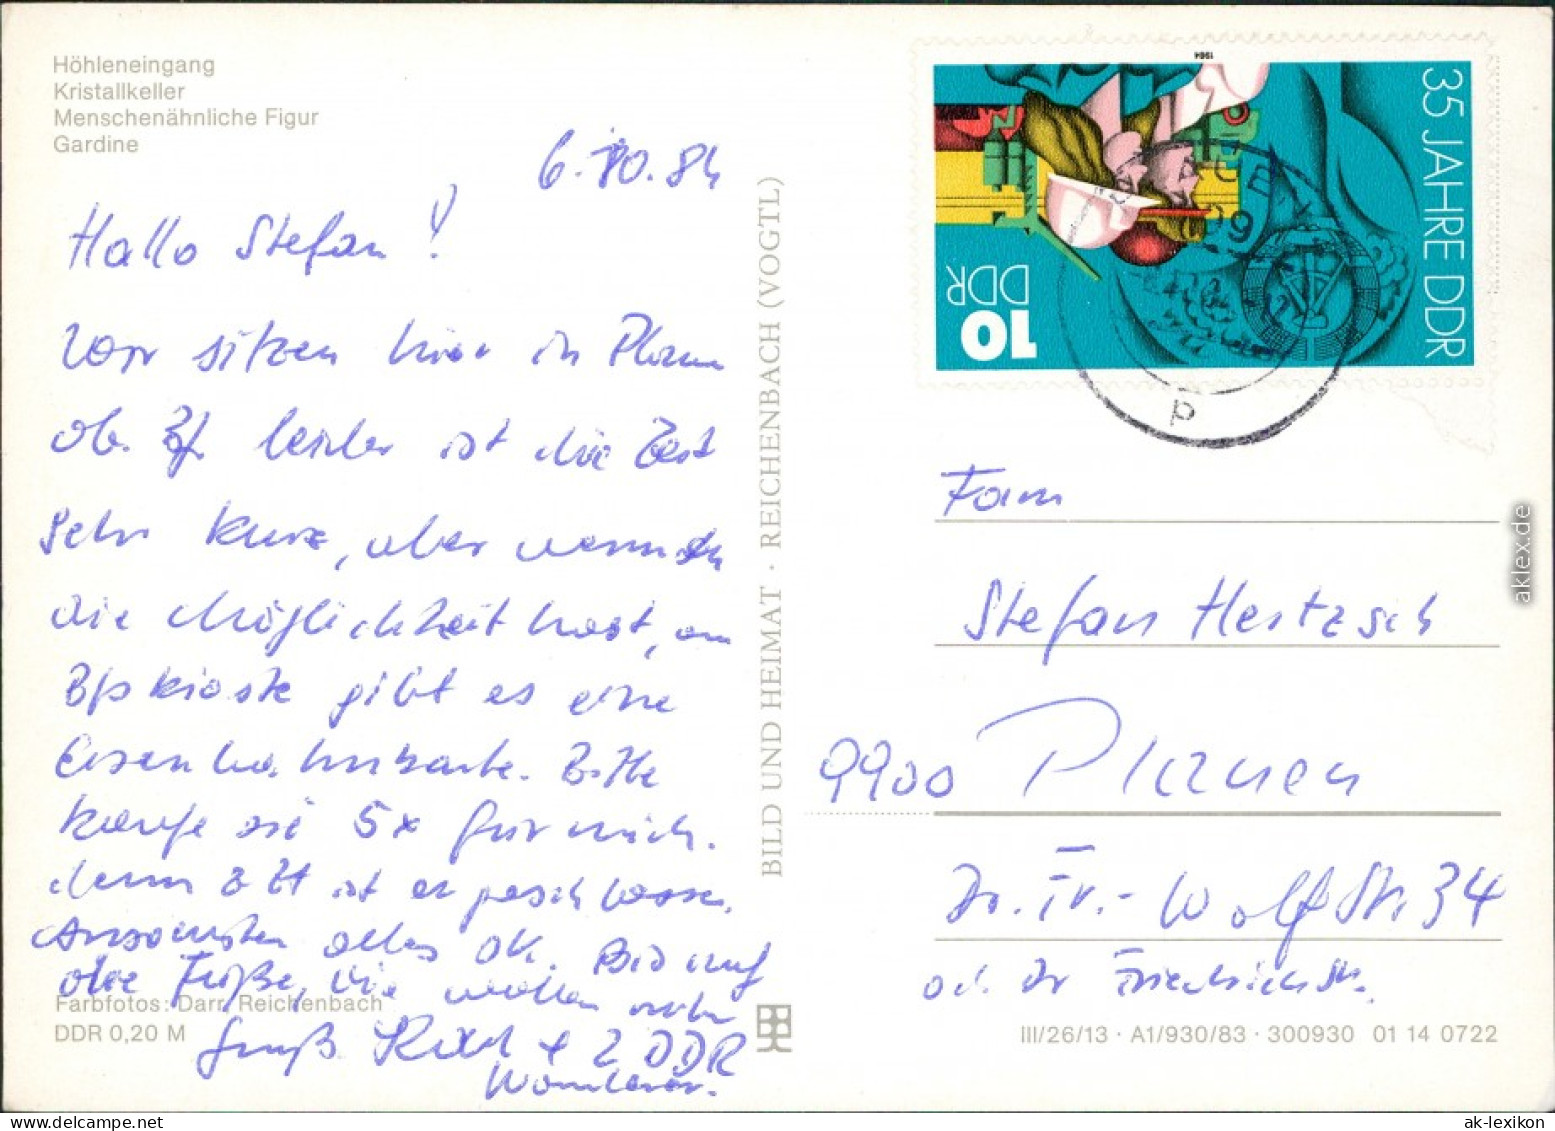 Höhleneingang
Kristallkeller
Menschenähnliche Figur
Gardine
6.10.84
Hallo Stefan!
Wir sitzen hier in Plauen
ob. Bf leider ist die Zeit
sehr kurz, aber wenn du
die Möglichkeit hast, am
Bfskioske gibt es eine
Eisenbahnkarte. Bitte
kaufe sie 5x für mich.
denn zZt ist er geschlossen.
Ansonsten alles OK. Bis auf
die Füße, die wollen nicht
Gruß + 2 DDR
Wanderer.
Farbfotos: Darr, Reichenbach
DDR 0,20 M
BILD UND HEIMAT · REICHENBACH (VOGTL)
35 JAHRE DDR
10
DDR
1984
p
Fam
Stefan Hertzsch
9900 Plauen
Dr. Fr.-Wolf Str. 34
od. Dr Friedrichstr.
III/26/13 · A1/930/83 · 300930 01 14 0722
aklex.de
ak-lexikon